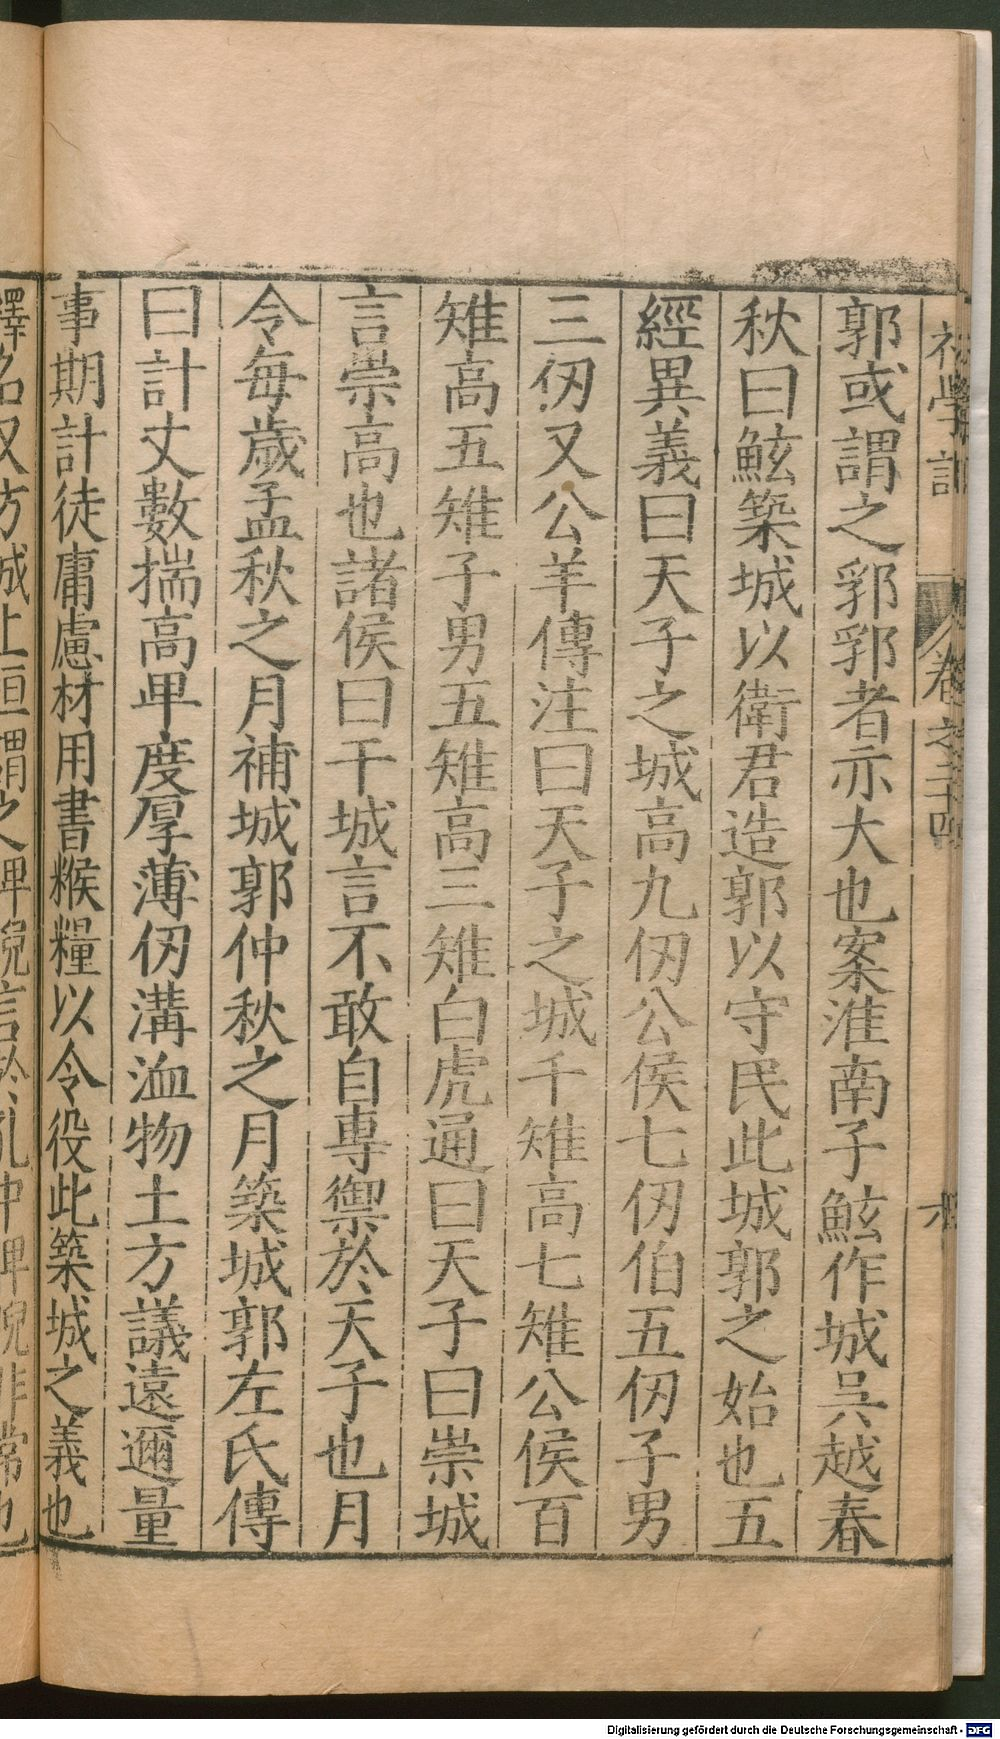 初學記
卷之二十四
郭或謂之郛郛者亦大也案淮南子鮌作城吳越春
秋曰鮌築城以衛君造郭以守民此城郭之始也五
經異義曰天子之城高九仞公侯七仞伯五仞子男
三仞又公羊傳注曰天子之城千雉高七雉公侯百
雉高五雉子男五雉高三雉白虎通曰天子曰崇城
言崇高也諸侯曰干城言不敢自專禦於天子也月
令每歲孟秋之月補城郭仲秋之月築城郭左氏傳
曰計丈數揣高卑度厚薄仞溝洫物土方議遠邇量
事期計徒庸慮材用書糇糧以令役此築城之義也
釋名又方城上垣謂之睥睨言於孔中睥睨非常也
Digitalisierung gefördert durch die Deutsche Forschungsgemeinschaft - DFG